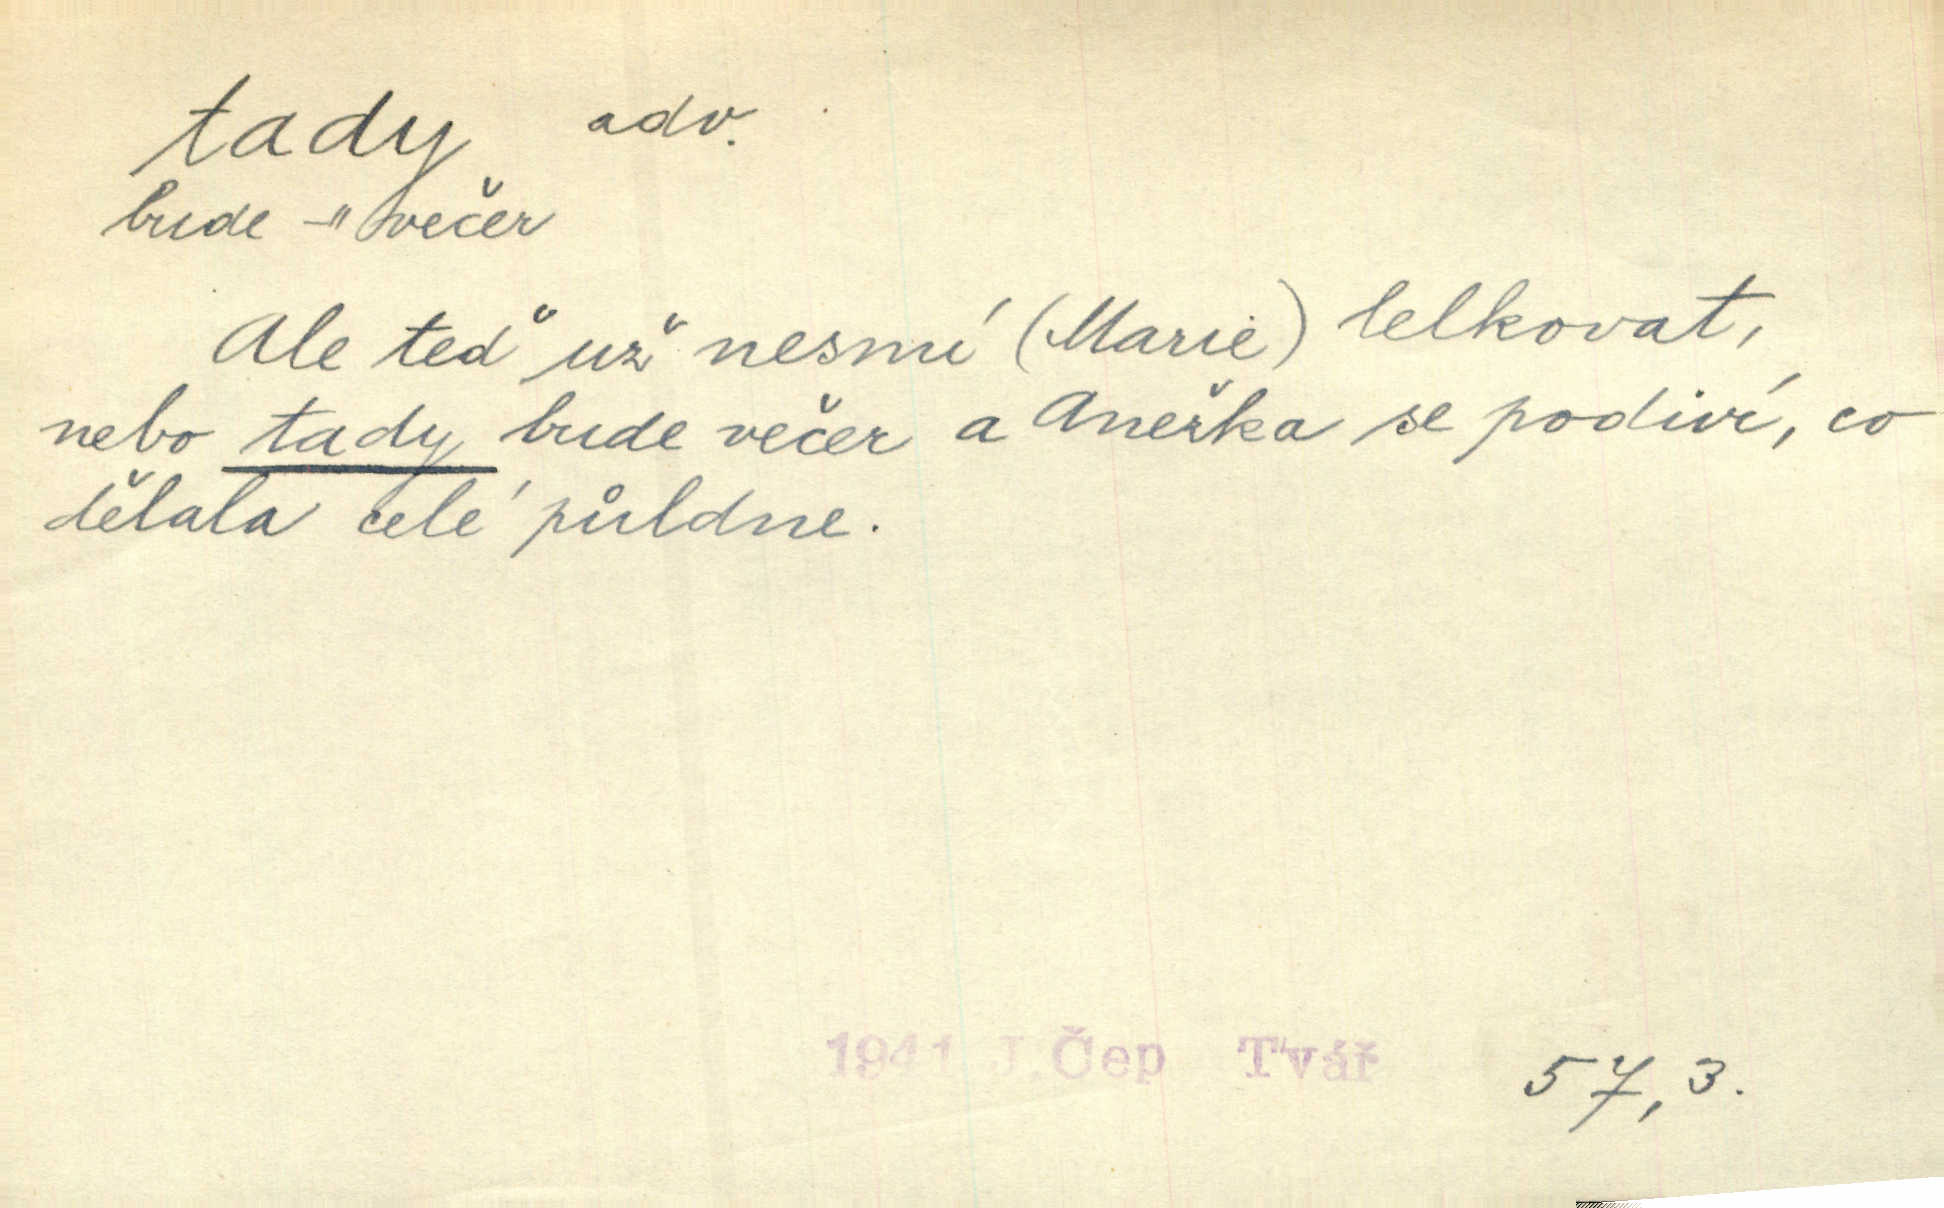 tady adv.
bude -"- večer
Ale teď už nesmí (Marie) lelkovat,
nebo tady bude večer a Anežka se podiví, co
dělala celé půldne.
1941 J. Čep Tvář 57,3.